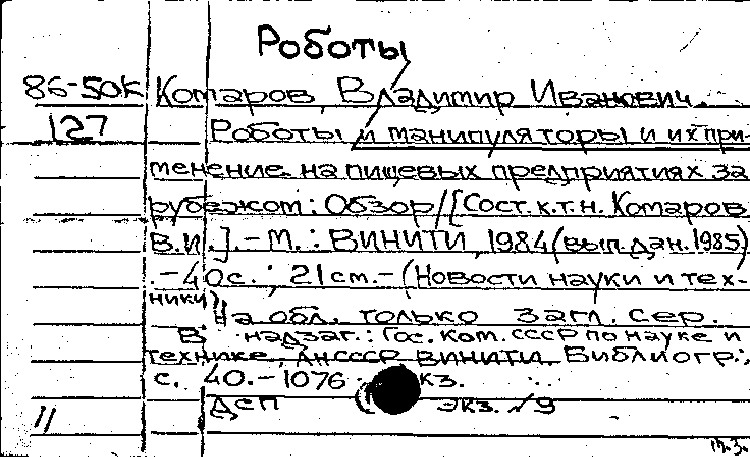 Роботы
86-50к Комаров, Владимир Иванович.
127 Роботы и манипуляторы и их при-
менение на пищевых предприятиях за
рубежом: Обзор/[Сост. к.т.н. Комаров
В.И.].-М.: ВИНИТИ, 1984(вып.дан.1985)
.-40с.; 21см.-(Новости науки и тех-
ники)
На обл. только загл. сер.
В надзаг.: Гос. ком. СССР по науке и
технике, АН СССР ВИНИТИ. Библиогр.:
с. 40.-1076 кз.
ДСП Экз. №9
11